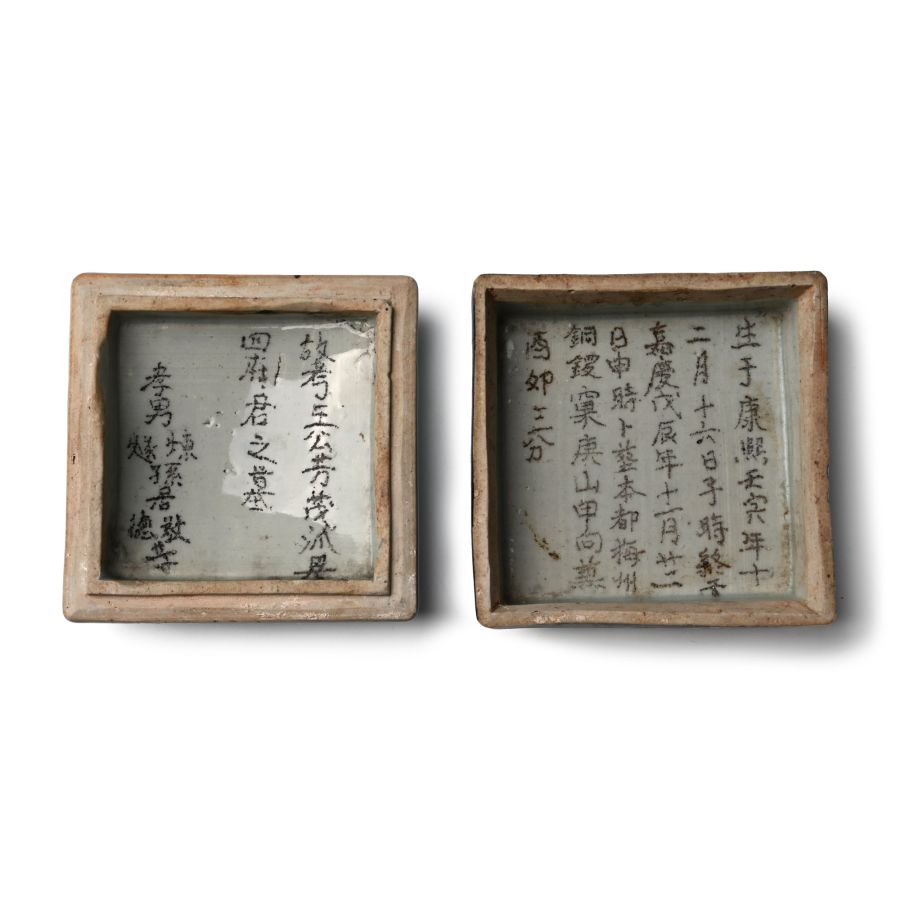 故考王公芳茂派居
四府君之墓
孝男
孫君敬等
德
生于康熙壬寅年十
二月十六日子時終于
嘉慶戊辰年十一月廿二
日申時卜葬本都梅州
銅鑼窠庚山甲向兼
酉卯三分